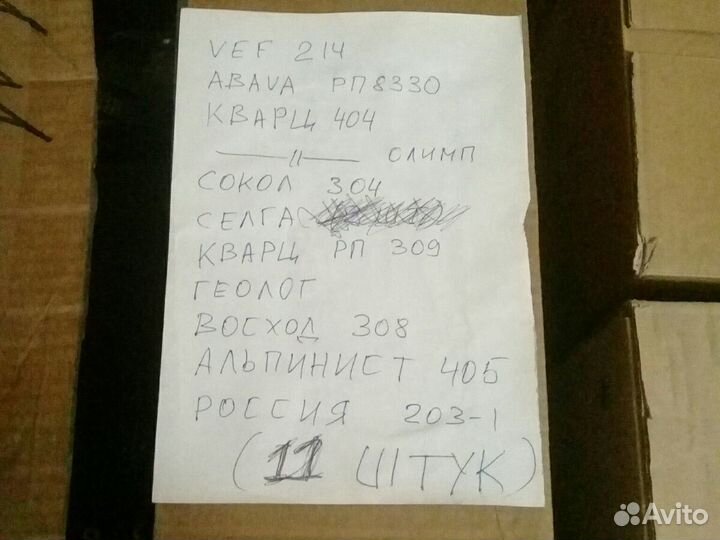 VEF 214
ABAVA РП8330
КВАРЦ 404
——〃—— ОЛИМП
СОКОЛ 304
СЕЛГА
КВАРЦ РП 309
ГЕОЛОГ
ВОСХОД 308
АЛЬПИНИСТ 405
РОССИЯ 203-1
(11 ШТУК)
Avito